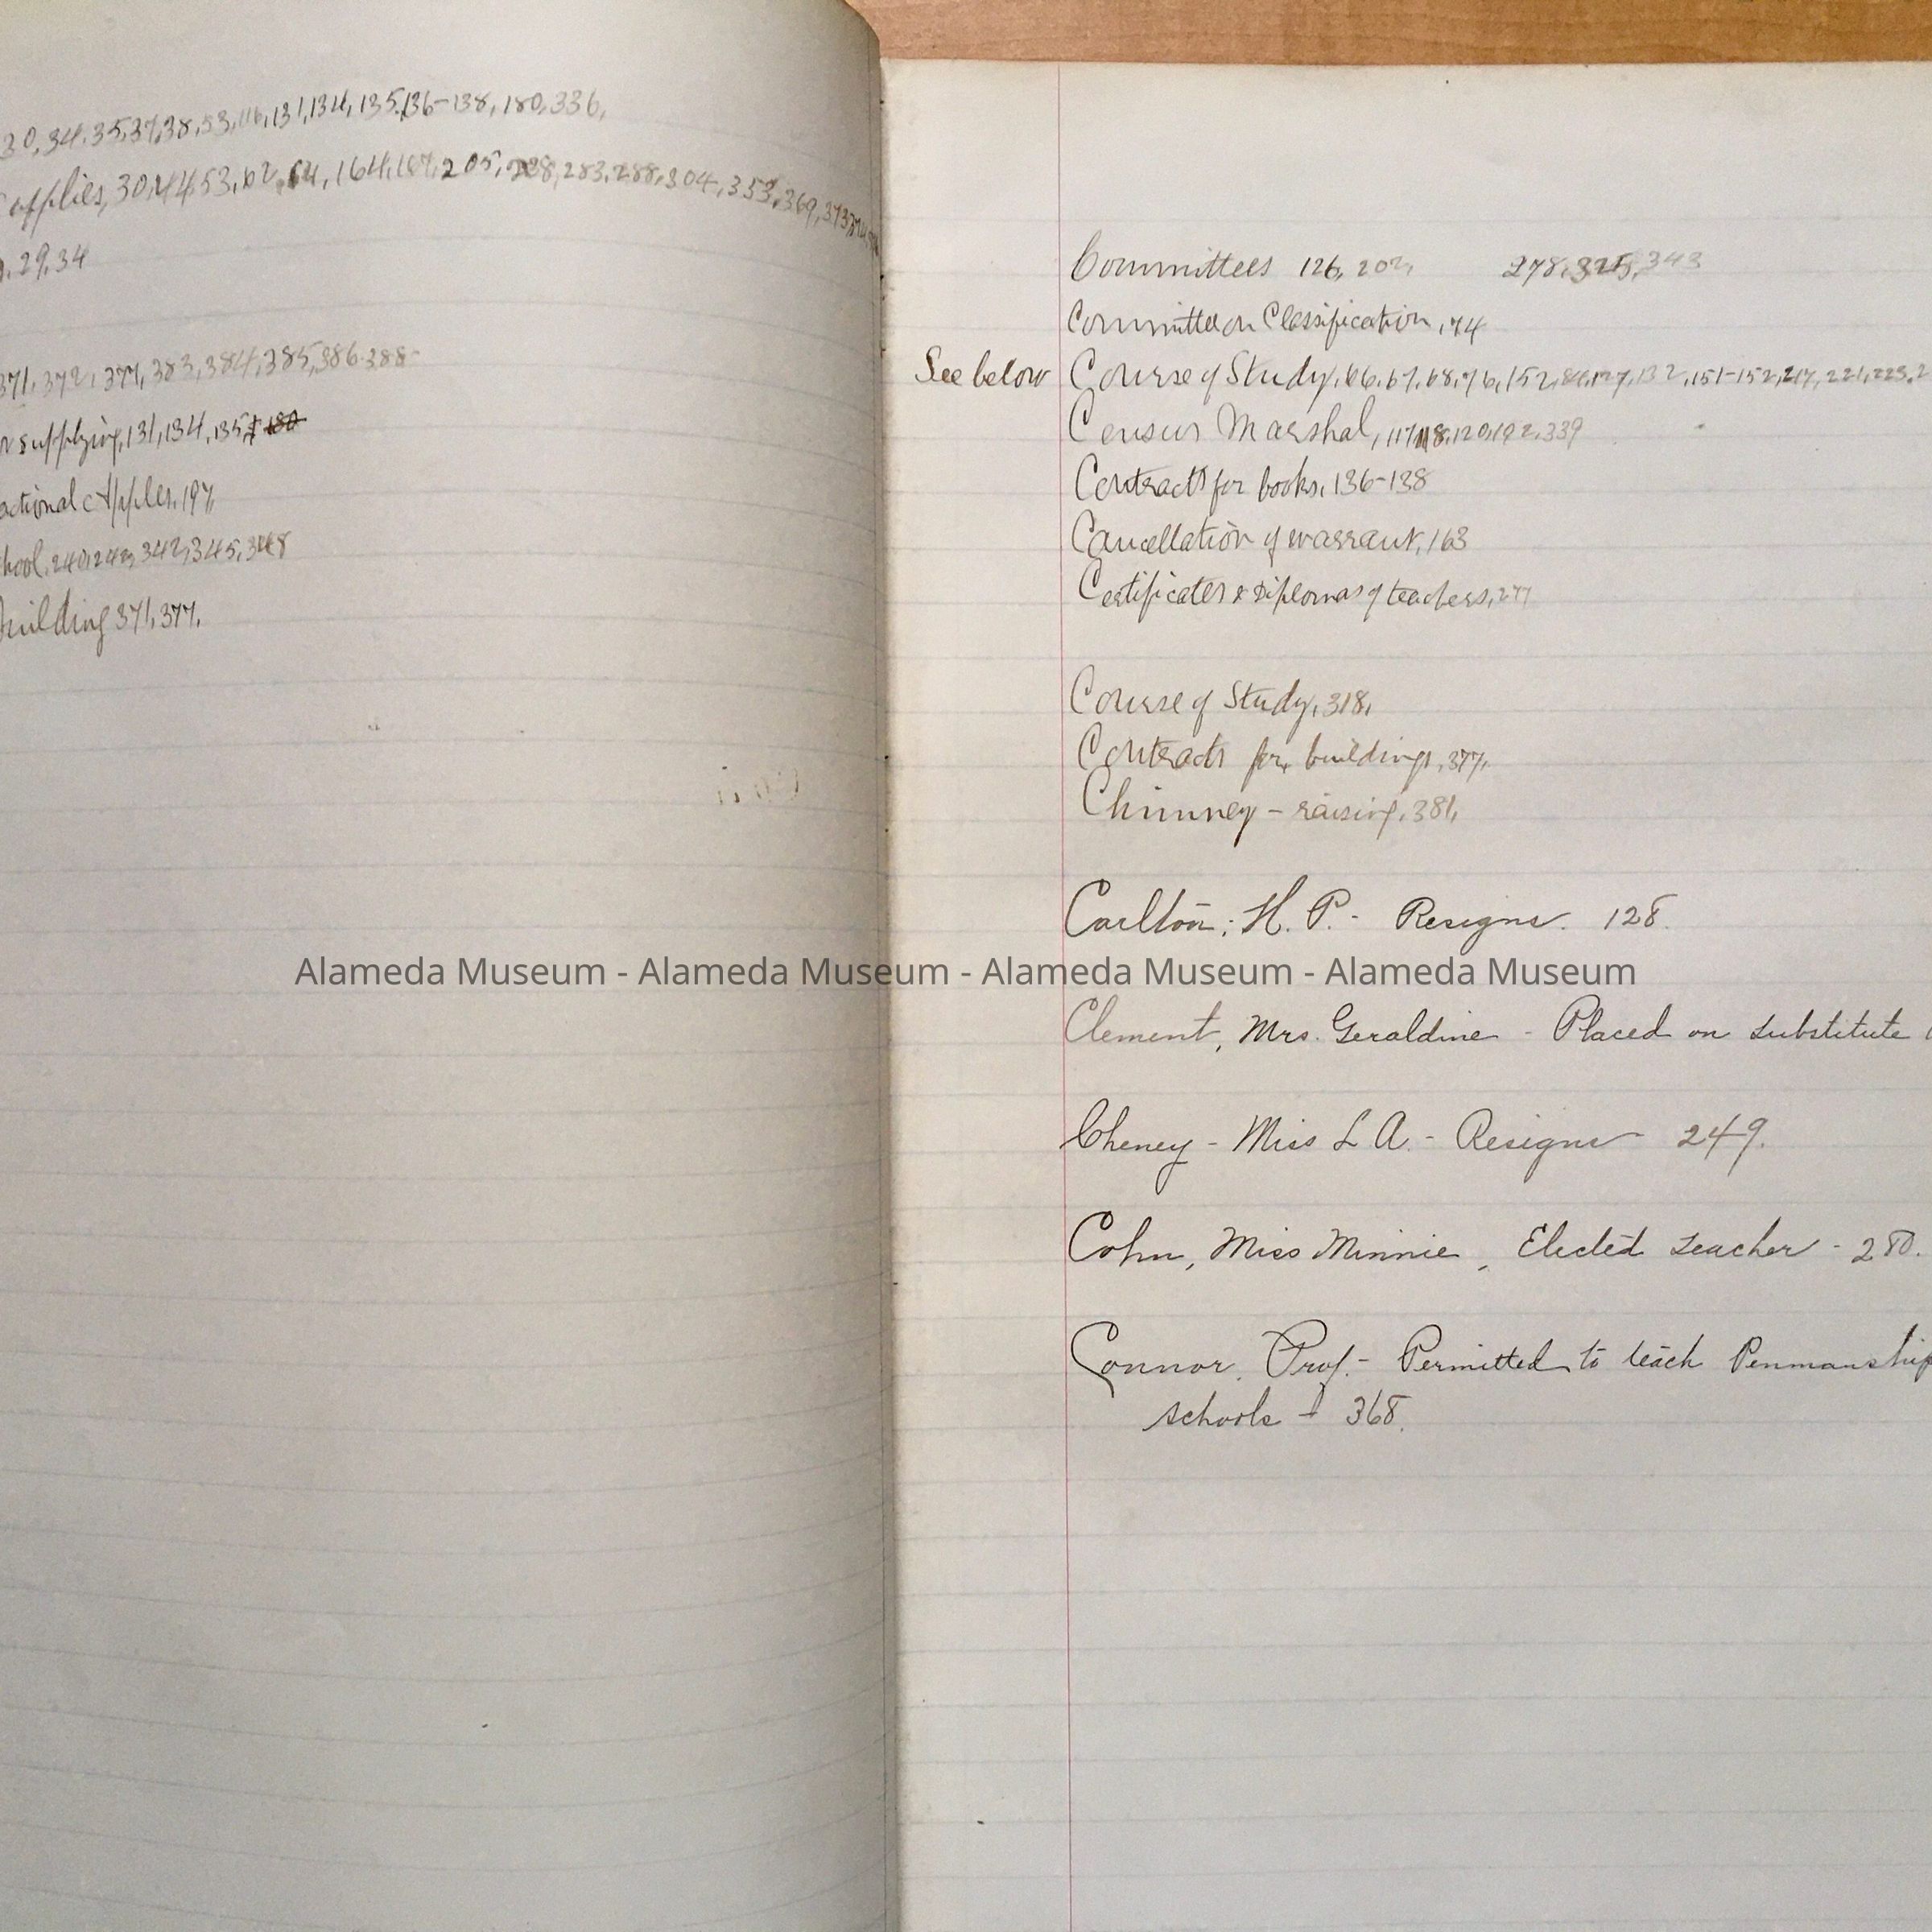 30,34,35,37,38,53,116,131,134,135,136-138,180,336,
applies, 30,44,53,62,64,164,167,205,228,283,288,304,353,369,373
29,34
371,372,377,383,384,385,386-388
supplying,131,134,135, 180
actional Apples,197
hool,240,242,342,345,348
building 371,377.
Committees 126, 202, 278,325,343
Committee on Classification, 74
See below Course of Study, 66,67,68,76,152,84,127,132,151-152,217,221,223,2
Census Marshal, 117,118,120,192,339
Contracts for books, 136-138
Cancellation of warrant, 163
Certificates & Diplomas of teachers, 277
Course of Study, 318,
Contracts for buildings, 377,
Chimney - raising, 381,
Carlton, H. P. - Resigns. 128.
Alameda Museum - Alameda Museum - Alameda Museum - Alameda Museum
Clement, Mrs. Geraldine - Placed on substitute
Cheney - Miss L A. - Resigns - 249.
Cohn, Miss Minnie, Elected teacher - 280.
Connor, Prof. - Permitted to teach Penmanship
schools - 368.